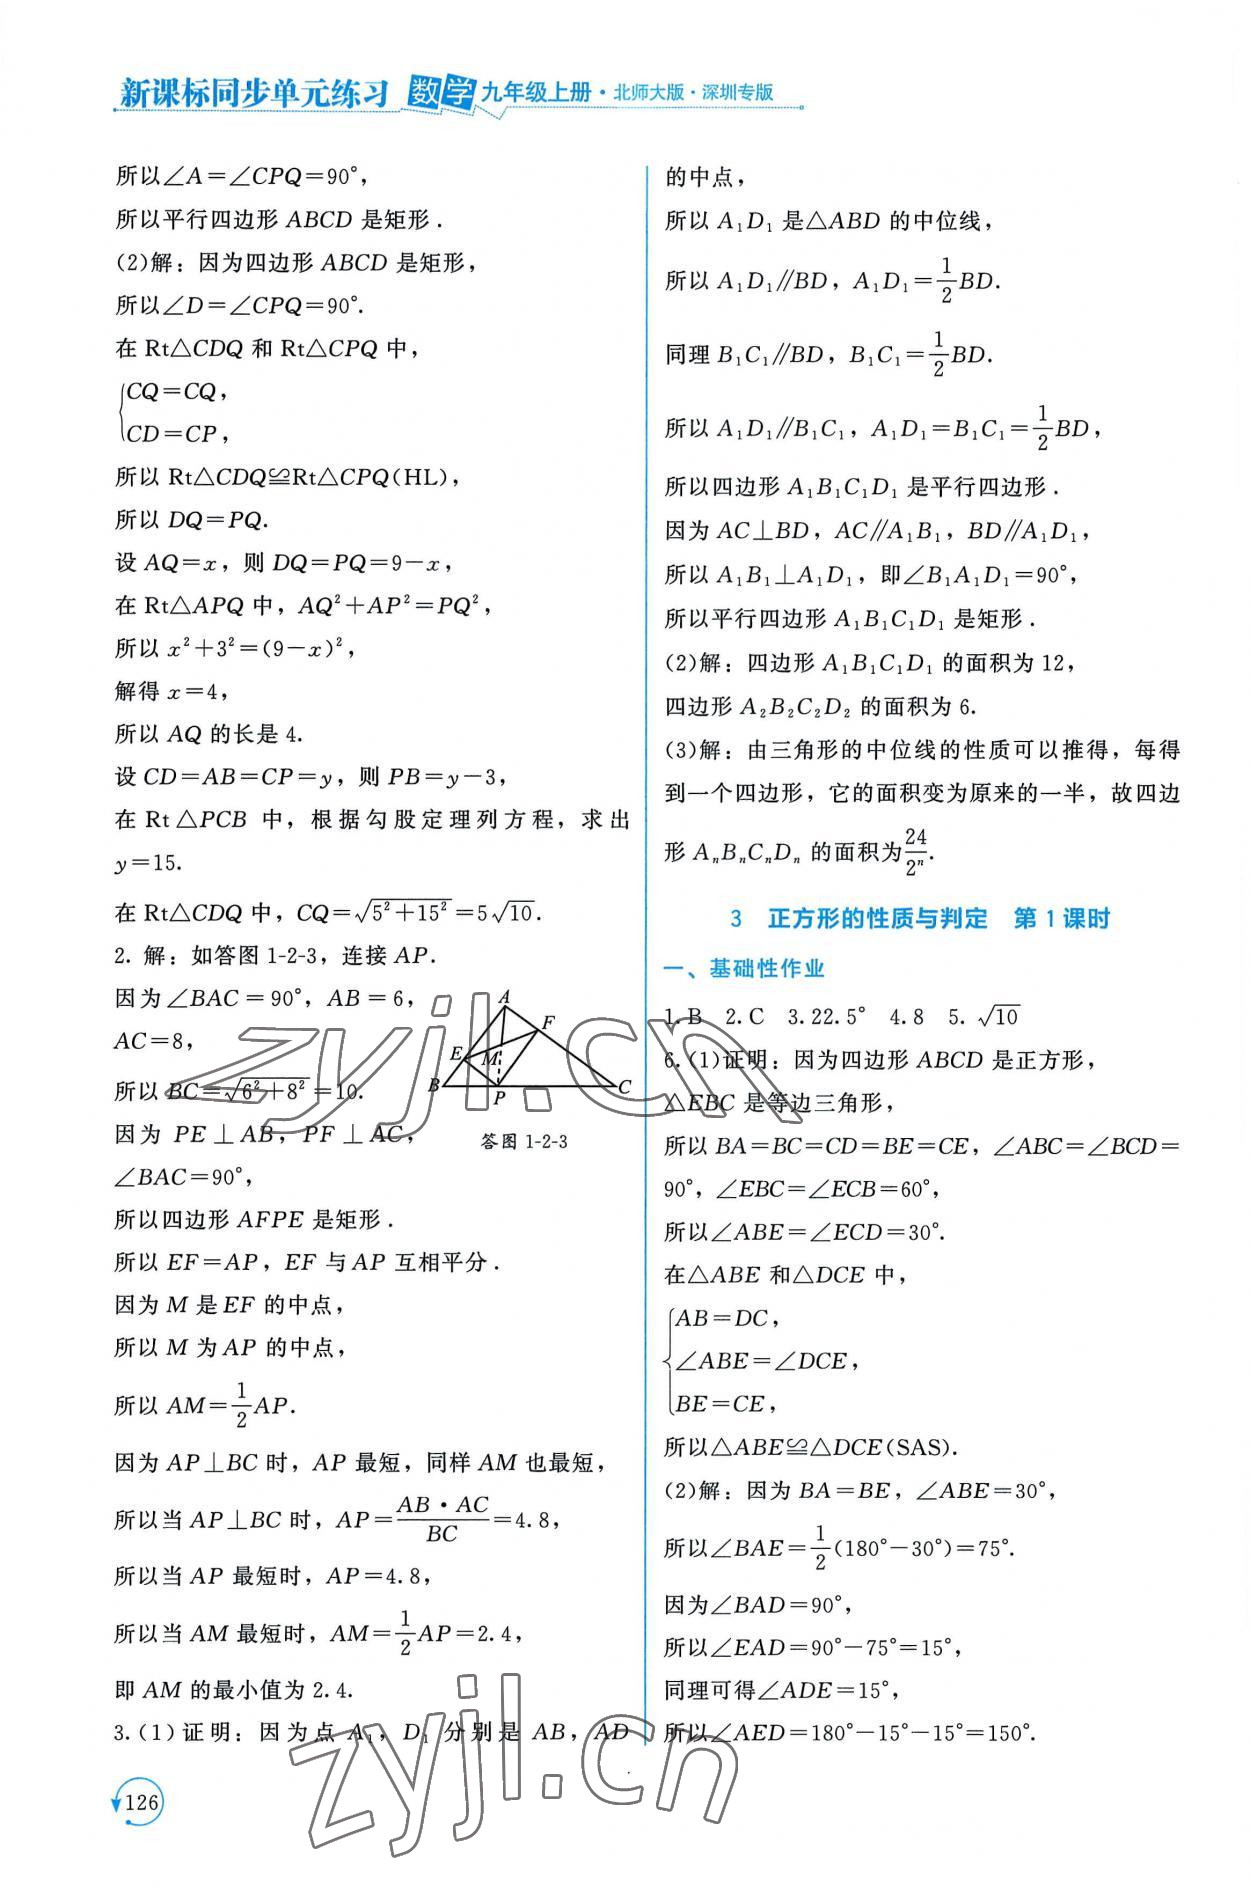 新课标同步单元练习 数学 九年级上册·北师大版·深圳专版
所以∠A=∠CPQ=90°,
所以平行四边形 ABCD 是矩形.
(2)解:因为四边形 ABCD 是矩形,
所以∠D=∠CPQ=90°.
在 Rt△CDQ 和 Rt△CPQ 中,
{CQ=CQ,
CD=CP,
所以 Rt△CDQ≌Rt△CPQ(HL),
所以 DQ=PQ.
设 AQ=x,则 DQ=PQ=9-x,
在 Rt△APQ 中,AQ²+AP²=PQ²,
所以 x²+3²=(9-x)²,
解得 x=4,
所以 AQ 的长是 4.
设 CD=AB=CP=y,则 PB=y-3,
在 Rt△PCB 中,根据勾股定理列方程,求出
y=15.
在 Rt△CDQ 中,CQ=√(5²+15²)=5√10.
2. 解:如答图 1-2-3,连接 AP.
因为∠BAC=90°,AB=6,
AC=8,
所以 BC=√(6²+8²)=10.
因为 PE⊥AB,PF⊥AC,
∠BAC=90°,
A
F
E
M
B
P
C
答图 1-2-3
所以四边形 AFPE 是矩形.
所以 EF=AP,EF 与 AP 互相平分.
因为 M 是 EF 的中点,
所以 M 为 AP 的中点,
所以 AM=1/2AP.
因为 AP⊥BC 时,AP 最短,同样 AM 也最短,
所以当 AP⊥BC 时,AP=AB·AC/BC=4.8,
所以当 AP 最短时,AP=4.8,
所以当 AM 最短时,AM=1/2AP=2.4,
即 AM 的最小值为 2.4.
3.(1)证明:因为点 A₁,D₁ 分别是 AB,AD
的中点,
所以 A₁D₁ 是△ABD 的中位线,
所以 A₁D₁∥BD,A₁D₁=1/2BD.
同理 B₁C₁∥BD,B₁C₁=1/2BD.
所以 A₁D₁∥B₁C₁,A₁D₁=B₁C₁=1/2BD,
所以四边形 A₁B₁C₁D₁ 是平行四边形.
因为 AC⊥BD,AC∥A₁B₁,BD∥A₁D₁,
所以 A₁B₁⊥A₁D₁,即∠B₁A₁D₁=90°,
所以平行四边形 A₁B₁C₁D₁ 是矩形.
(2)解:四边形 A₁B₁C₁D₁ 的面积为 12,
四边形 A₂B₂C₂D₂ 的面积为 6.
(3)解:由三角形的中位线的性质可以推得,每得
到一个四边形,它的面积变为原来的一半,故四边
形 AₙBₙCₙDₙ 的面积为24/2ⁿ.
3 正方形的性质与判定 第 1 课时
一、基础性作业
1.B 2.C 3.22.5° 4.8 5.√10
6.(1)证明:因为四边形 ABCD 是正方形,
△EBC 是等边三角形,
所以 BA=BC=CD=BE=CE,∠ABC=∠BCD=
90°,∠EBC=∠ECB=60°,
所以∠ABE=∠ECD=30°.
在△ABE 和△DCE 中,
{AB=DC,
∠ABE=∠DCE,
BE=CE,
所以△ABE≌△DCE(SAS).
(2)解:因为 BA=BE,∠ABE=30°,
所以∠BAE=1/2(180°-30°)=75°.
因为∠BAD=90°,
所以∠EAD=90°-75°=15°,
同理可得∠ADE=15°,
所以∠AED=180°-15°-15°=150°.
126
zyjl.cn
zyjl.cn